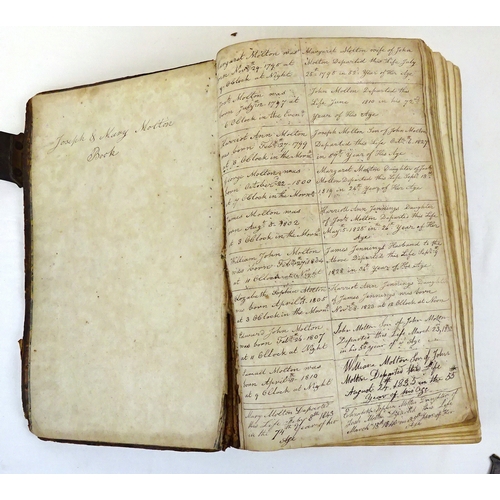 Joseph & Mary Molton
Book
Margaret Molton was
at Night
was
1797
Harriot Ann Molton
was born Feb 27 1799
at O'Clock in the Morn
George Molton was
born October 22 1800
at 7 O'Clock in the Morn
James Molton was
born Aug 8 1802
at 3 O'Clock in the Morn
William John Molton
was born
at 11 O'Clock at Night
Elizabeth Sophia Molton
was born April 1 1805
at 3 O'Clock in the Morn
Edward John Molton
was born Feb 26 1807
at 11 O'Clock at Night
was
born April 1810
at 9 O'Clock at Night
Mary Molton Departed
this Life 8th 1843
in the 74th Year of her
Age
Margaret Molton wife of John
Molton Departed this Life July
22 1798 in 52 Year of her Age
John Molton Departed this
Life June 1810 in his 72
Year of his Age
Joseph Molton Son of John Molton
Departed this Life Oct 1827
in 59th Year of his Age
Margaret Molton Daughter of
Molton Departed this Life Sept
1819 in 24th Year of her Age
Harriott Ann Jennings Daughter
of Molton Departed this Life
May 5 1828 in 30th Year of her
Age
James Jennings Husband to the
Above Departed this Life Sept
1828 in 36th Year of his Age
Harriot Ann Jennings Daughter
of James Jennings was born
Nov 5 1825 at 12 O'Clock at Noon
John Molton Son of John Molton
Departed this Life March 23
in his 55 year of his Age
William Molton Son of John
Molton Departed this Life
August 24 1835 in the 55
Year of his Age
Elizabeth Sophia Molton Daughter of
Molton Departed this Life
March 18 in Year of her
Age